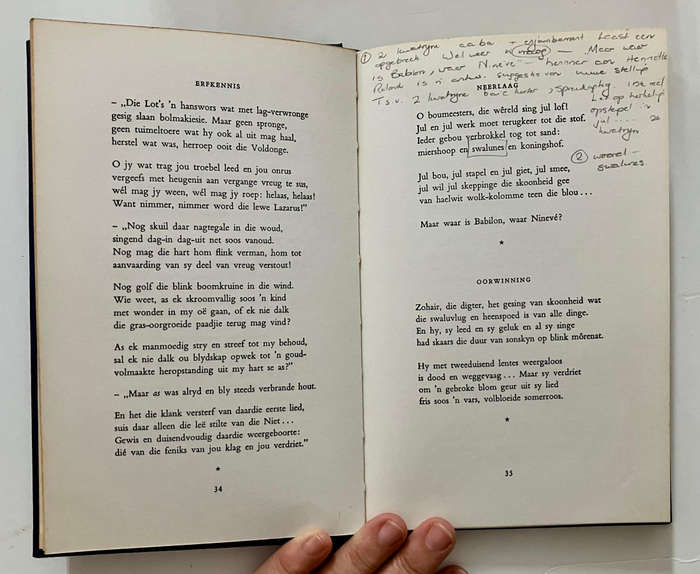 ERFKENNIS
– „Die Lot's 'n hanswors wat met lag-verwronge
gesig slaan bolmakiesie. Maar geen spronge,
geen tuimeltoere wat hy ook al uit mag haal,
herstel wat was, herroep ooit die Voldonge.
O jy wat trag jou troebel leed en jou onrus
vergeefs met heugenis aan vergange vreug te sus,
wél mag jy ween, wél mag jy roep: helaas, helaas!
Want nimmer, nimmer word die lewe Lazarus!”
– „Nog skuil daar nagtegale in die woud,
singend dag-in dag-uit net soos vanoud.
Nog mag die hart hom flink verman, hom tot
aanvaarding van sy deel van vreug verstout!
Nog golf die blink boomkruine in die wind.
Wie weet, as ek skroomvallig soos 'n kind
met wonder in my oë gaan, of ek nie dalk
die gras-oorgroeide paadjie terug mag vind?
As ek manmoedig stry en streef tot my behoud,
sal ek nie dalk ou blydskap opwek tot 'n goud-
volmaakte heropstanding uit my hart se as?”
– „Maar as was alryd en bly steeds verbrande hout.
En het die klank versterf van daardie eerste lied,
suis daar alleen die leë stilte van die Niet . . .
Gewis en duisendvoudig daardie weergeboorte:
dié van die feniks van jou klag en jou verdriet.”
*
34
① 2 kwatryne aaba + enjambement laaste een
opgebreek Wel weer – Maar waar
is Babilon, waar Ninevé – herinner aan Henriette
Roland is 'n antw. suggestie van
T.s.v. 2 kwatryne
NEERLAAG
O boumeesters, die wêreld sing jul lof!
Jul en jul werk moet terugkeer tot die stof.
Ieder gebou verbrokkel tog tot sand:
miershoop en swalunes en koningshof.
Let op herhaling
jul .....
kwatryn
② woord –
swalunes
Jul bou, jul stapel en jul giet, jul smee,
jul wil jul skeppinge die skoonheid gee
van haelwit wolk-kolomme teen die blou . . .
Maar waar is Babilon, waar Ninevé?
*
OORWINNING
Zohair, die digter, het gesing van skoonheid wat
die swaluvlug en heenspoed is van alle dinge.
En hy, sy leed en sy geluk en al sy singe
had skaars die duur van sonskyn op blink môrenat.
Hy met tweeduisend lentes weergaloos
is dood en weggevaag . . . Maar sy verdriet
om 'n gebroke blom geur uit sy lied
fris soos 'n vars, volbloeide somerroos.
*
35